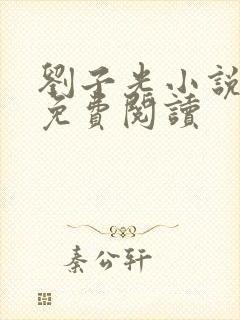 劉子光小說
免費閱讀
秦公軒